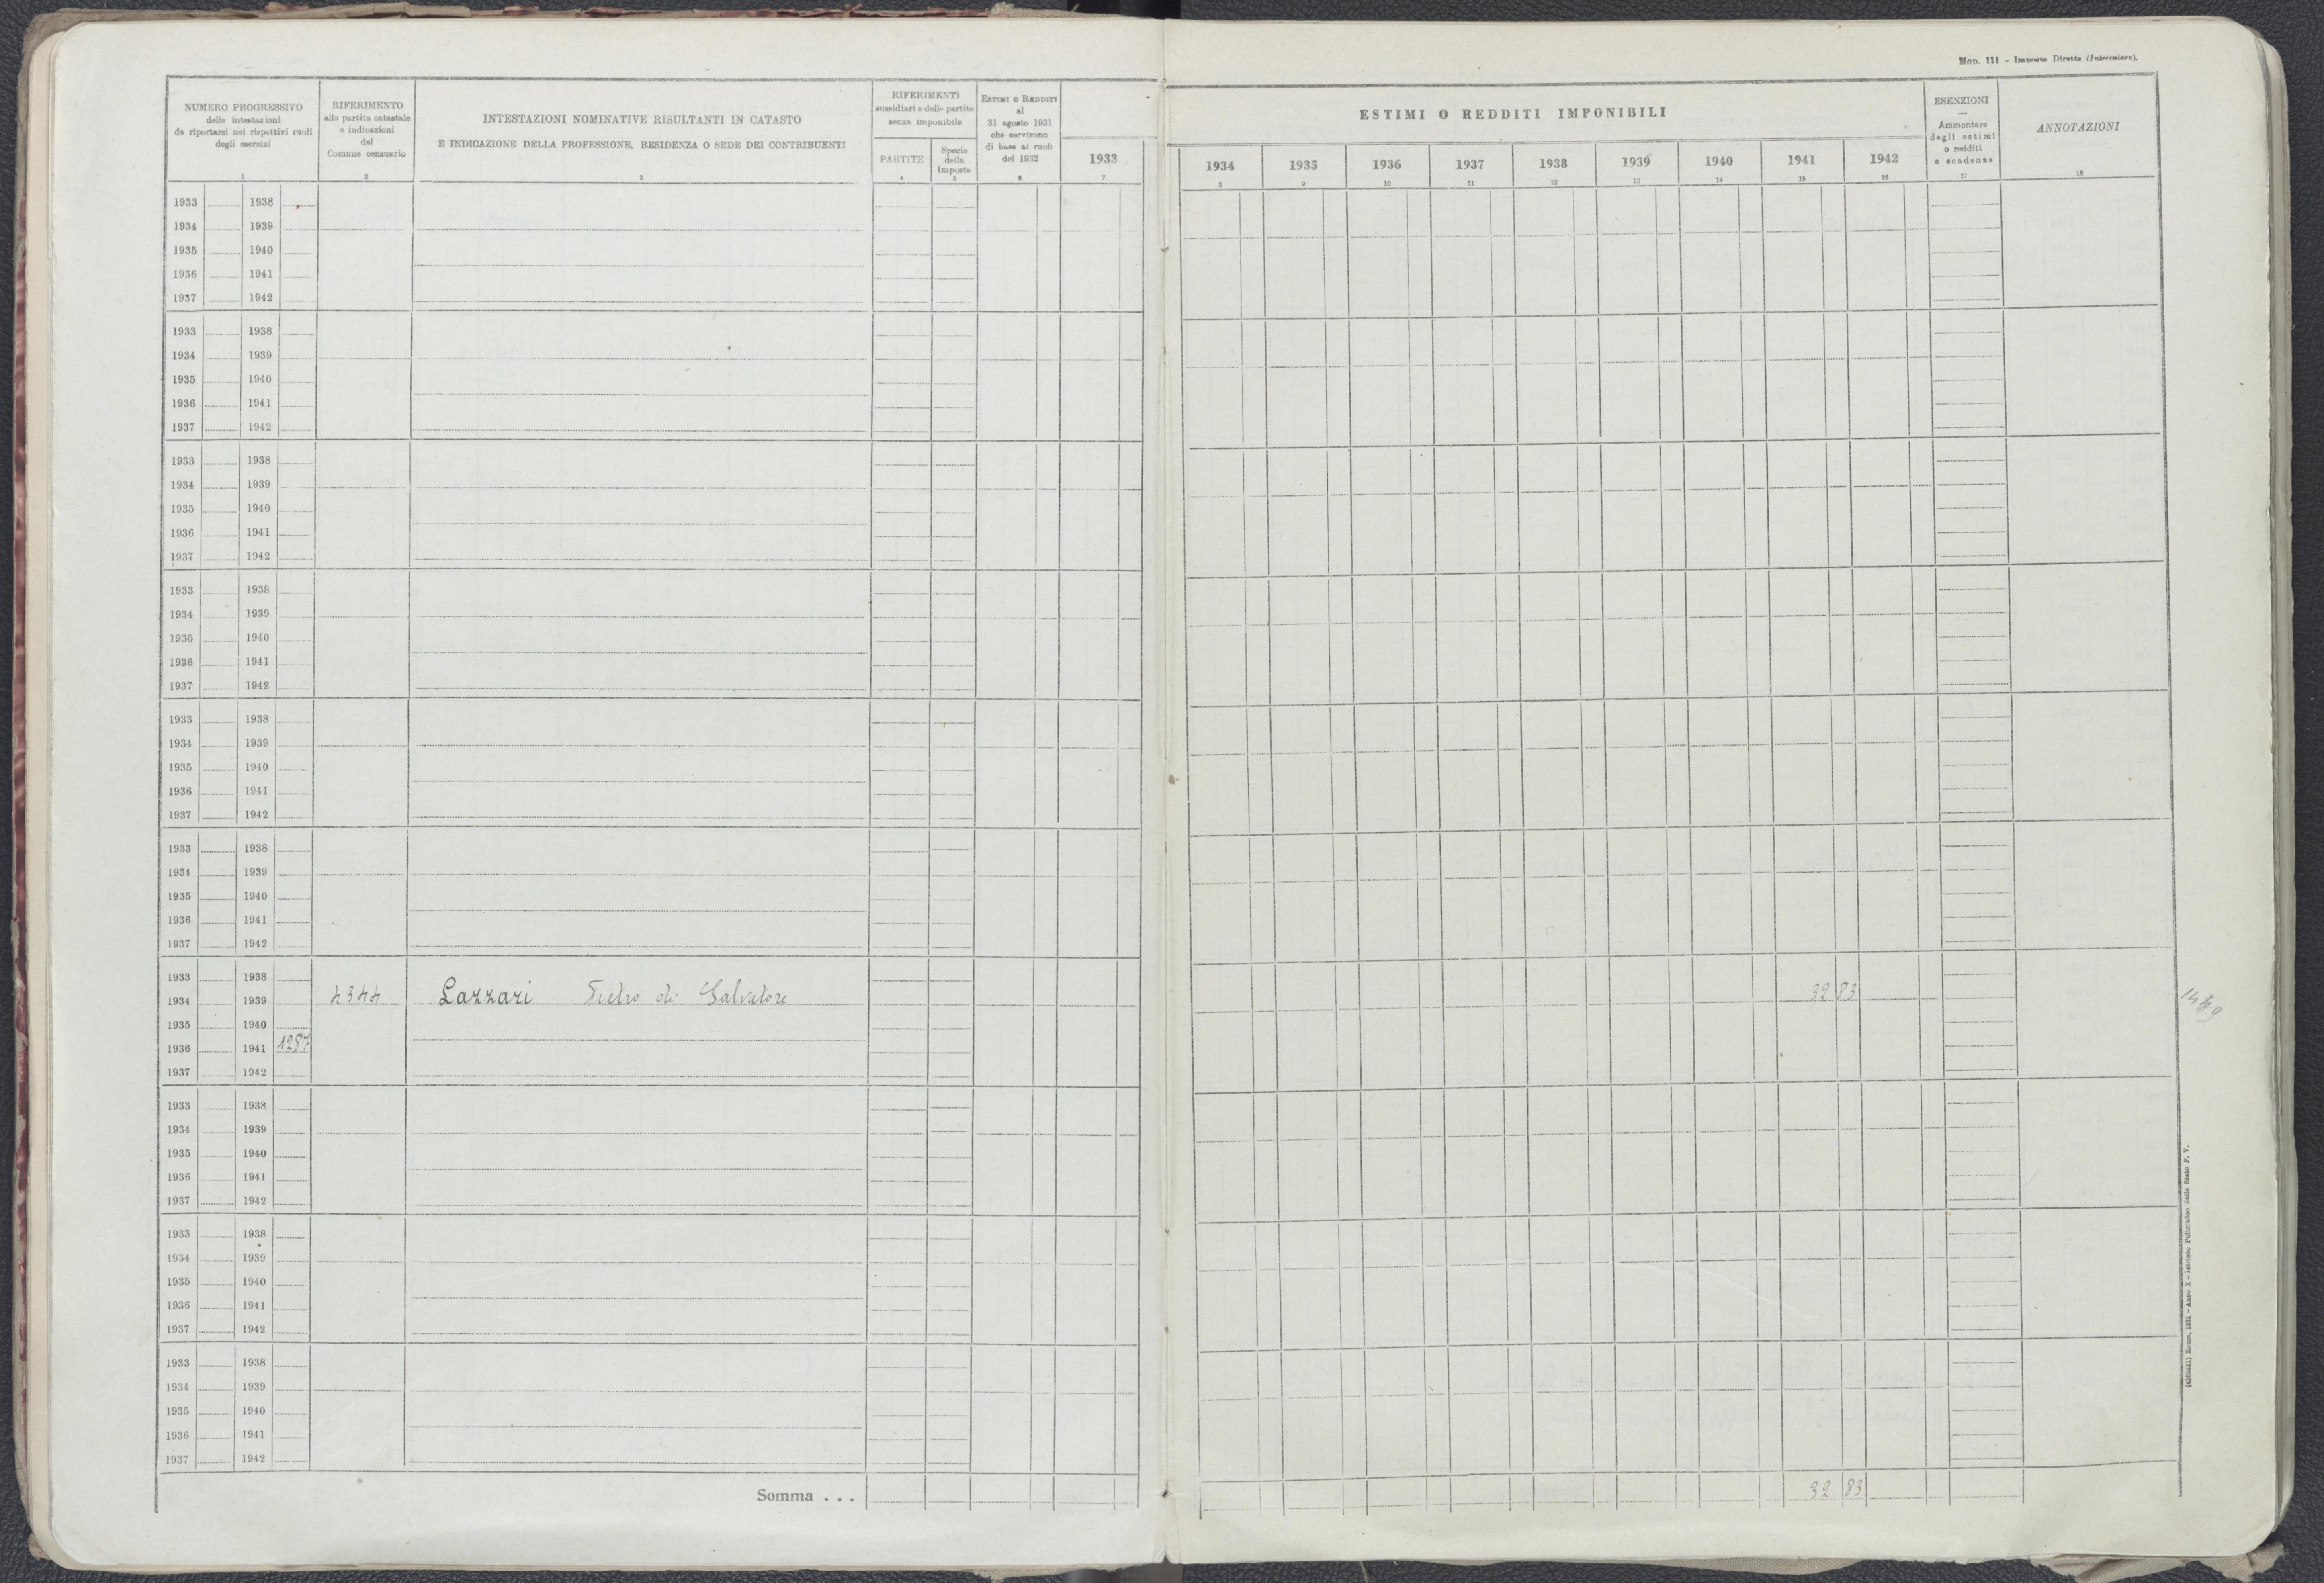 Mod. 111 - Imposte Dirette (Intercalare).
NUMERO PROGRESSIVO
delle intestazioni
da riportarsi nei rispettivi ruoli
degli esercizi
1
RIFERIMENTO
alla partita catastale
e indicazioni
del
Comune censuario
2
INTESTAZIONI NOMINATIVE RISULTANTI IN CATASTO
E INDICAZIONE DELLA PROFESSIONE, RESIDENZA O SEDE DEI CONTRIBUENTI
3
RIFERIMENTI
sussidiari e delle partite
senza imponibile
PARTITE
4
Specie
della
Imposta
5
ESTIMI O REDDITI
al
31 agosto 1931
che servirono
di base ai ruoli
del 1932
6
1933
7
ESTIMI O REDDITI IMPONIBILI
1934 1935 1936 1937 1938 1939 1940 1941 1942
8 9 10 11 12 13 14 15 16
ESENZIONI
—
Ammontare
degli estimi
o redditi
e scadenze
17
ANNOTAZIONI
18
1933 1938
1934 1939
1935 1940
1936 1941
1937 1942
1933 1938
1934 1939
1935 1940
1936 1941
1937 1942
1933 1938
1934 1939
1935 1940
1936 1941
1937 1942
1933 1938
1934 1939
1935 1940
1936 1941
1937 1942
1933 1938
1934 1939
1935 1940
1936 1941
1937 1942
1933 1938
1934 1939
1935 1940
1936 1941
1937 1942
1933 1938
1934 1939 4344 Lazzari Pietro di Salvatore 32 83
1935 1940
1936 1941 1287
1937 1942
1933 1938
1934 1939
1935 1940
1936 1941
1937 1942
1933 1938
1934 1939
1935 1940
1936 1941
1937 1942
1933 1938
1934 1939
1935 1940
1936 1941
1937 1942
Somma . . . 32 83
Roma, 1931 - Anno X - Istituto Poligrafico dello Stato P. V.